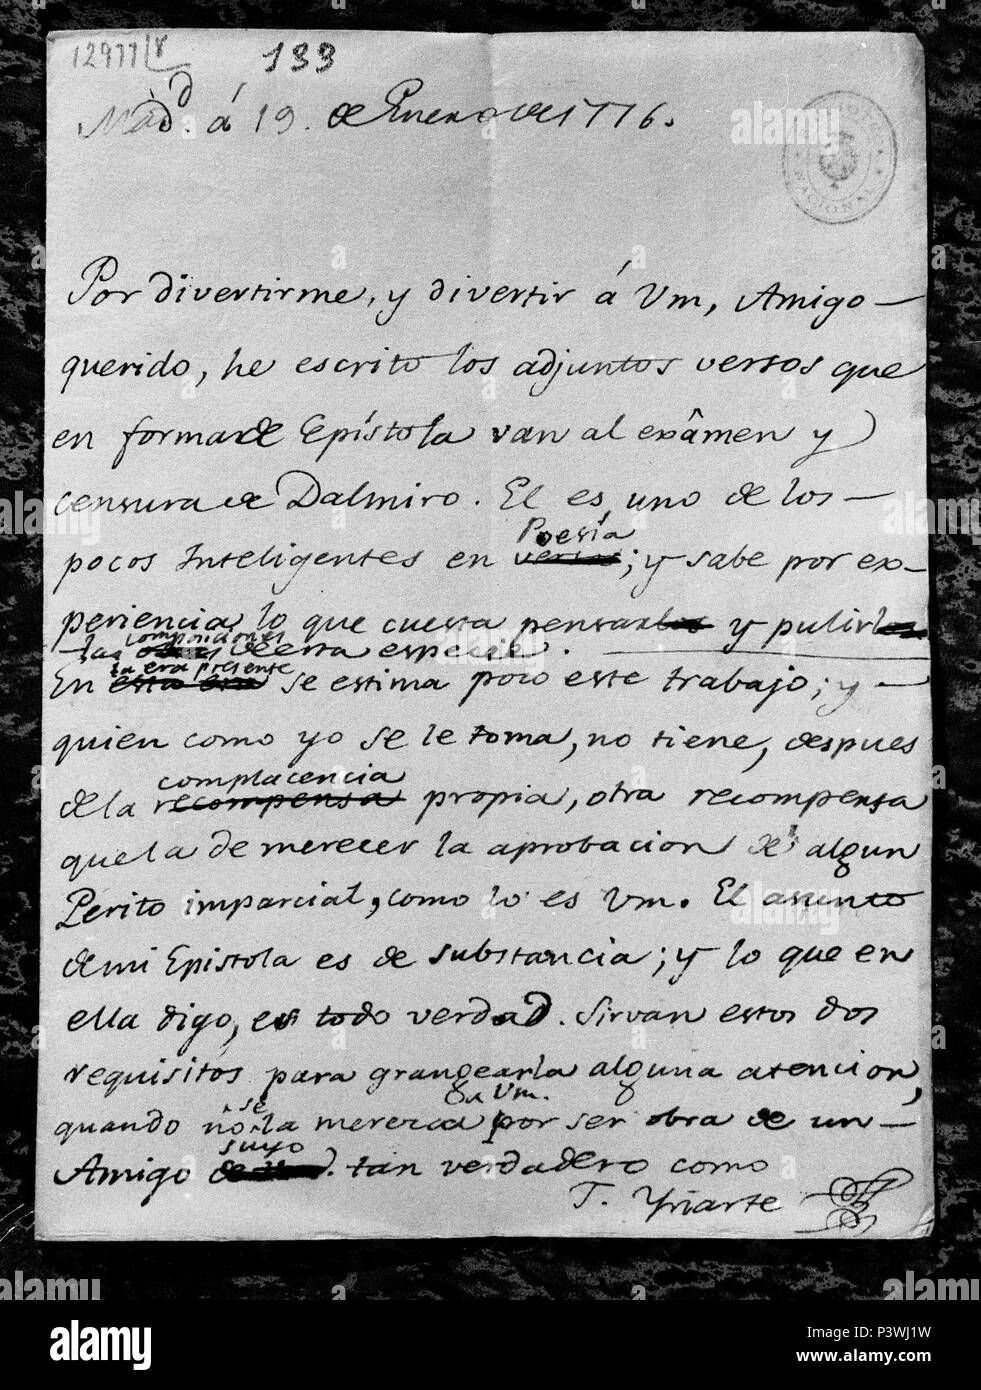 12977/8
133
Mad.d á 19. de Enero de 1776.
BIBLIOTECA NACIONAL
Por divertirme, y divertir á Vm, Amigo
querido, he escrito los adjuntos versos que
en forma de Epístola van al exâmen y
censura de Dalmiro. El es uno de los
Poesía
pocos Inteligentes en versos; y sabe por ex-
periencia lo que cuesta pensarlos y pulirlos
composiciones
las obras de esta especie.
la era presente
En esta era se estima poco este trabajo; y
quien como yo se le toma, no tiene, despues
complacencia
de la recompensa propia, otra recompensa
que la de merecer la aprobacion de algun
Perito imparcial, como lo es Vm. El asunto
de mi Epistola es de substancia; y lo que en
ella digo, es todo verdad. Sirvan estos dos
requisitos para grangearla alguna atencion,
se a Vm.
quando no la merezca por ser obra de un
suyo
Amigo tan verdadero como
T. Yriarte
alamy
Image ID: P3WJ1W
www.alamy.com